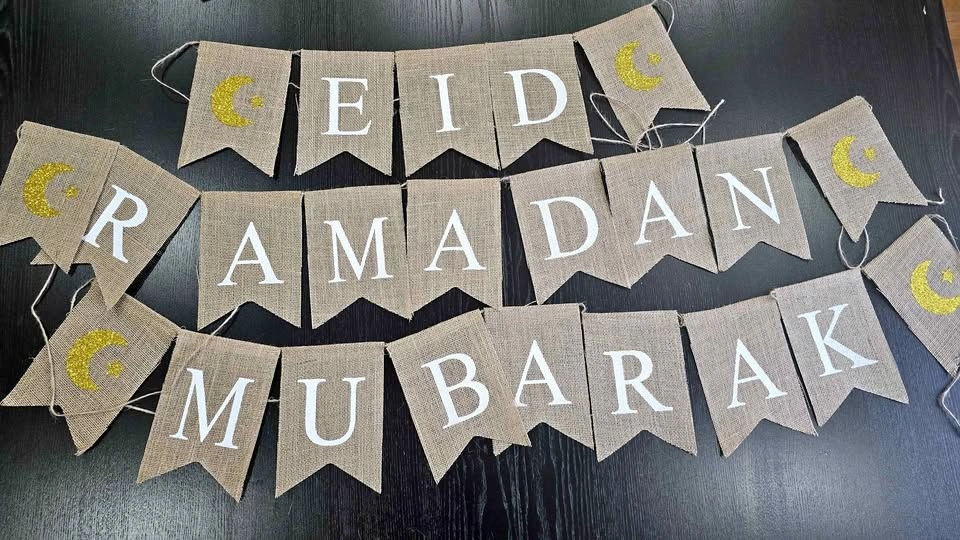 EID
RAMADAN
MUBARAK